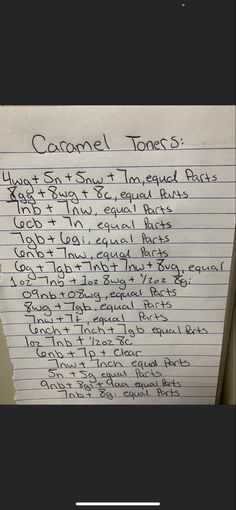 Caramel Toners:
4wg + 5n + 5nw + 7m, equal Parts
8gg + 8wg + 8c, equal Parts
7nb + 7nw, equal Parts
6cb + 7n, equal Parts
7gb + 6gi, equal Parts
6nb + 7nw, equal Parts
6g + 7gb + 7nb + 7nw + 8vg, equal
1oz 7nb + 1oz 8wg + 1/2oz 8gi
09nb + 08wg, equal Parts
8wg + 7gb, equal Parts
7nw + 7t, equal Parts
6nch + 7nch + 7gb equal Parts
1oz 7nb + 1/2oz 8c
6nb + 7p + clear
7nw + 7nch equal Parts
5n + 5g equal Parts
9nb + 8gi + 9aa equal Parts
7nb + 8gi equal Parts